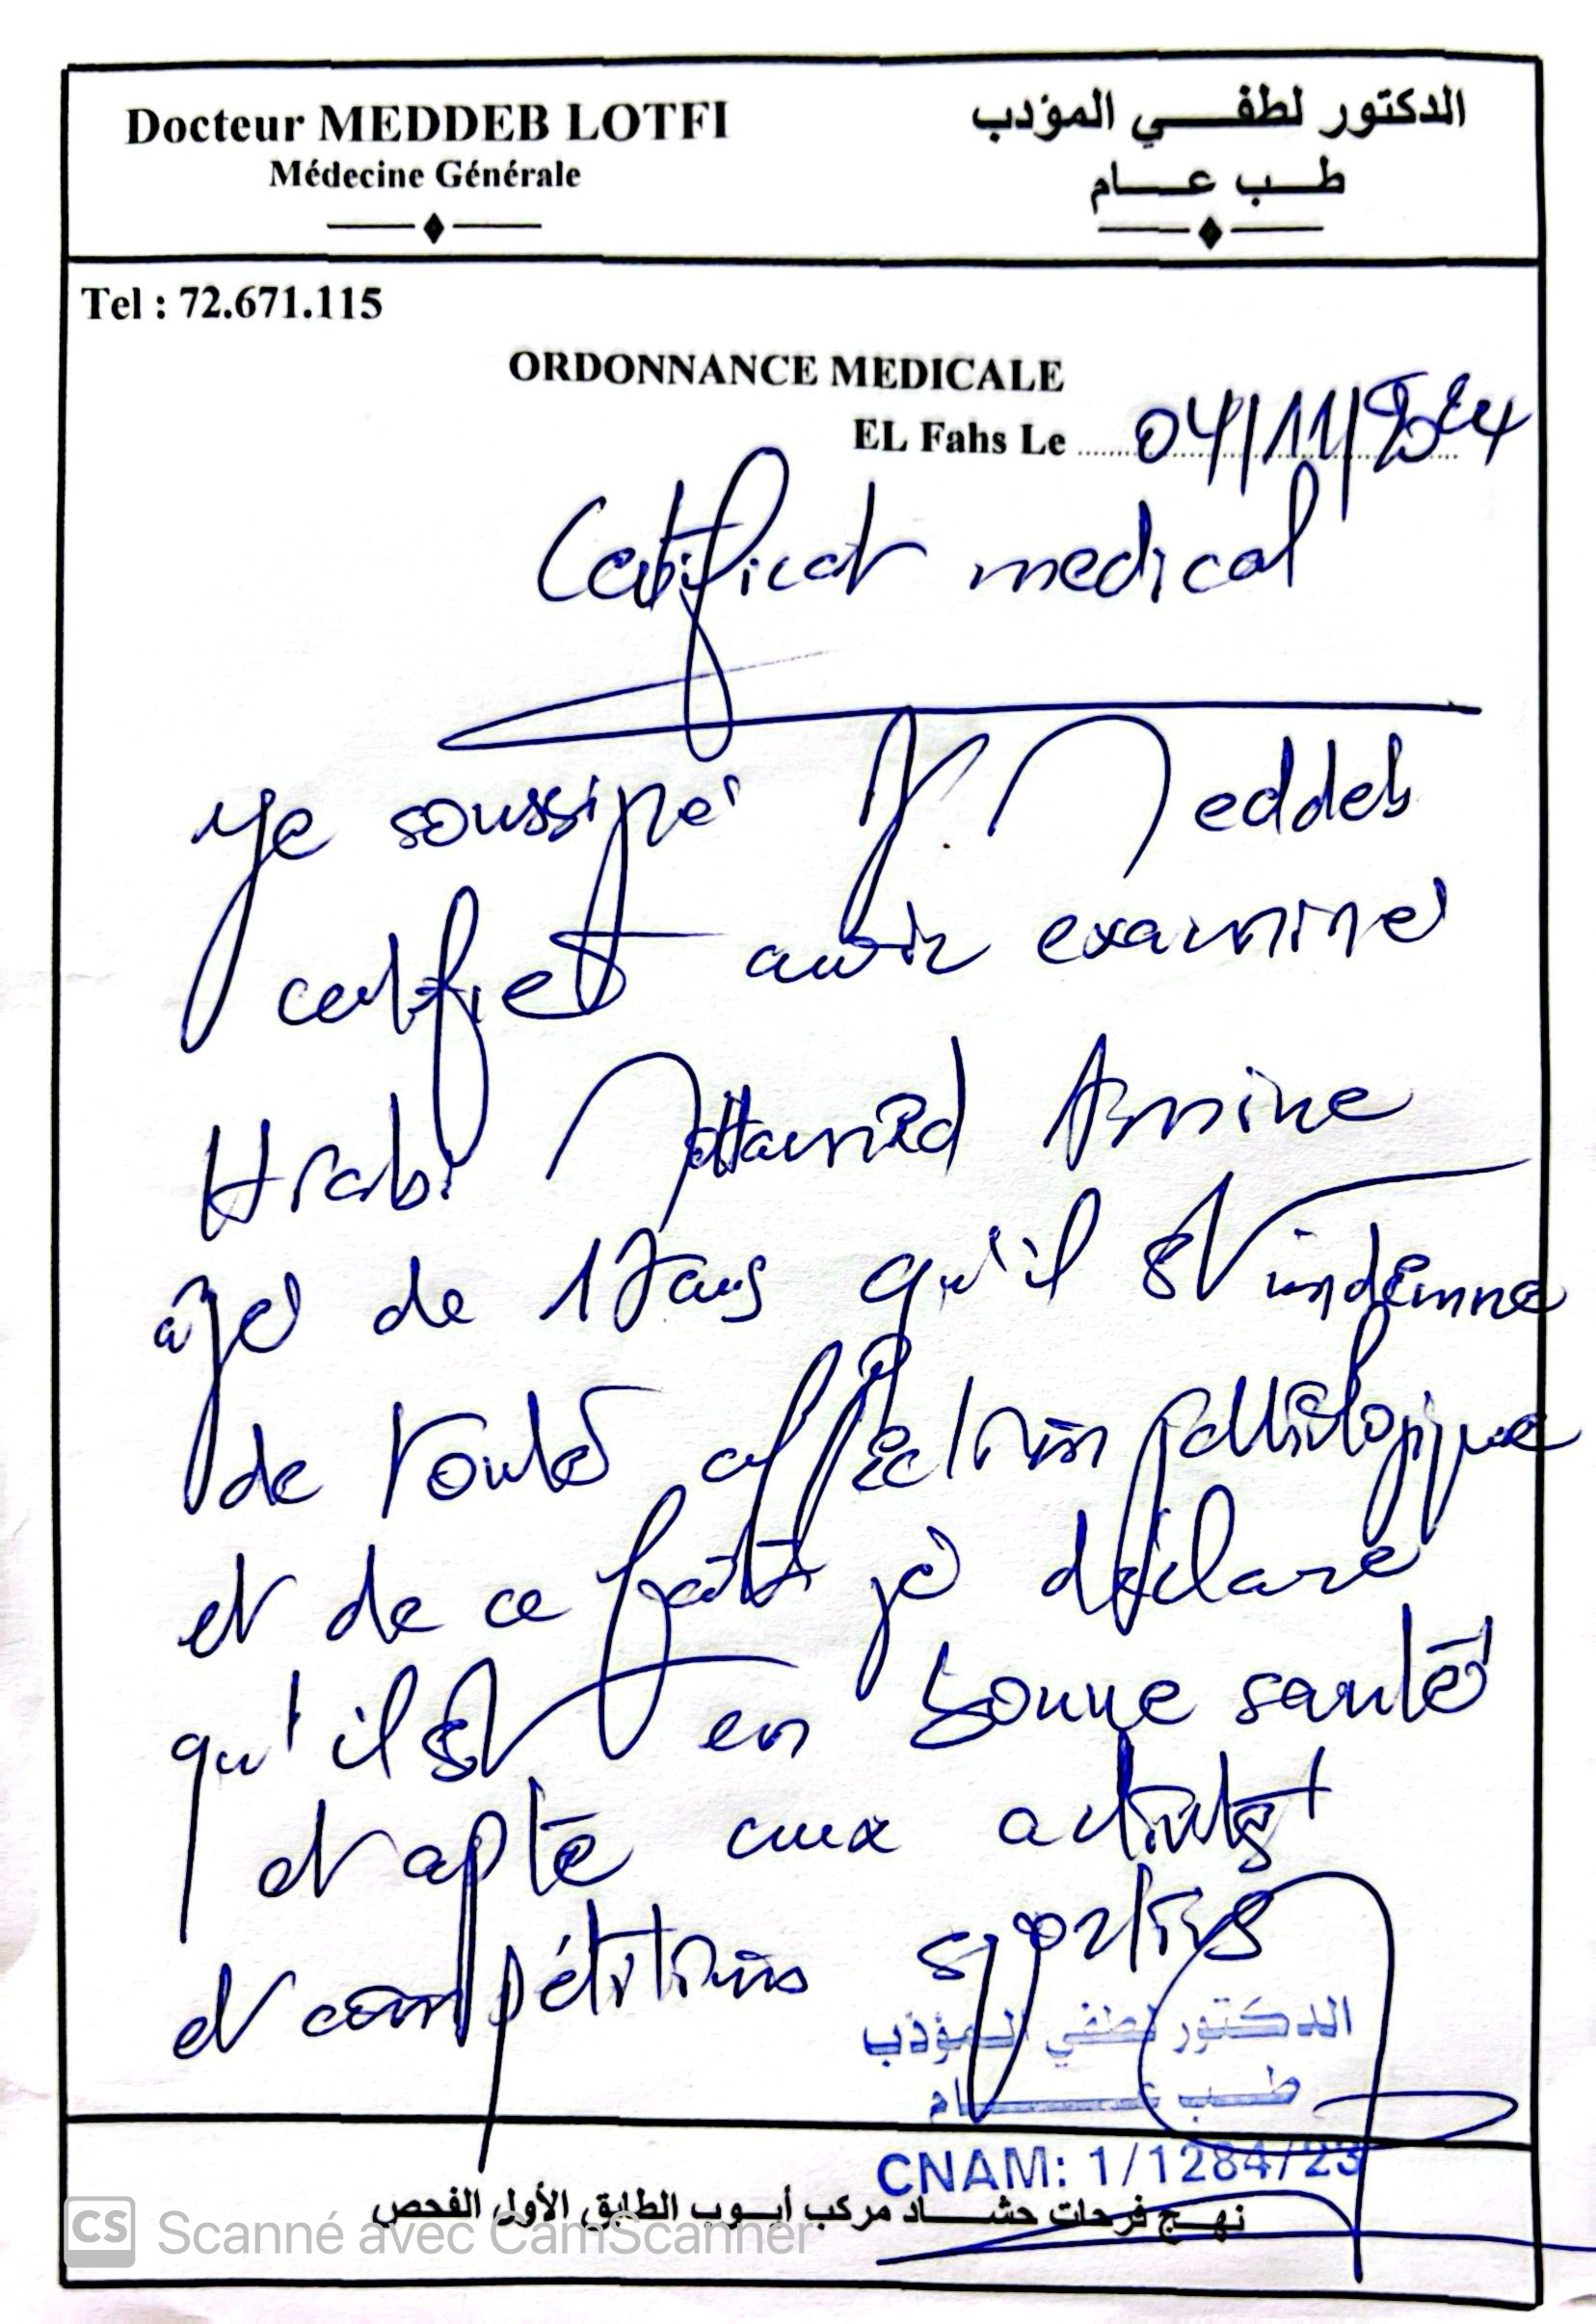 Docteur MEDDEB LOTFI
Médecine Générale
الدكتور لطفي المؤدب
طب عام
Tel : 72.671.115
ORDONNANCE MEDICALE
EL Fahs Le 04/11/2024
Certificat medical
Je soussigné Dr. Meddeb
certifiet avoir examiné
Hrabi Mohamed Amine
âgé de 17 ans qu'il est indemne
de toute affection pathologique
et de ce fait je déclare
qu'il est en bonne santé
et apte aux activités
et compétitions sportives
الدكتور لطفي المؤدب
طب عام
CNAM: 1/1284/23
نهج فرحات حشاد مركب أيوب الطابق الأول الفحص
CS Scanné avec CamScanner